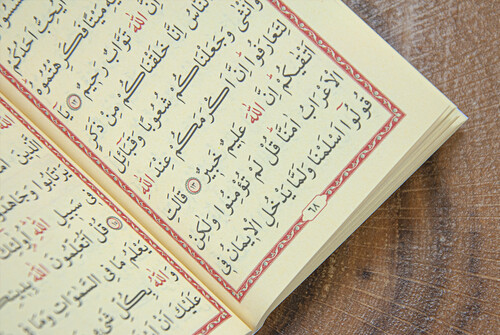 ايحب احدكم
يه ميتا فكرهتموه
ان الله تواب رحيم ١٢ يا
الناس انا خلقناكم من ذكر
وانثى وجعلناكم شعوبا وقبائل
لتعارفوا ان اكرمكم عند الله
اتقيكم ان الله عليم خبير ١٣ قالت
الاعراب امنا قل لم تؤمنوا ولكن
قولوا اسلمنا ولما يدخل الايمان في
٦٨
الذين
يرتابوا وجاهدوا
في سبيل الله اولئك
قل اتعلمون الله بدينك
يعلم ما في السموات وما
والله بكل شيء
عليك ان